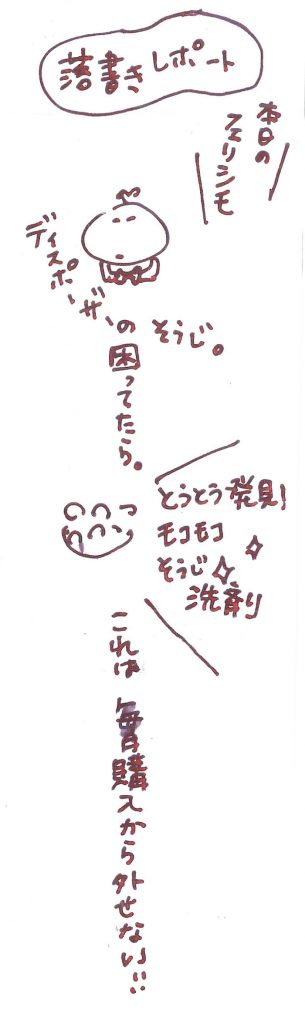 落書きレポート
本日の
フェリシモ
ディスポーザーの そうじ。
困ってたら。
とうとう発見!
モコモコ
そうじ
洗剤!
これは 毎月購入から外せない!!